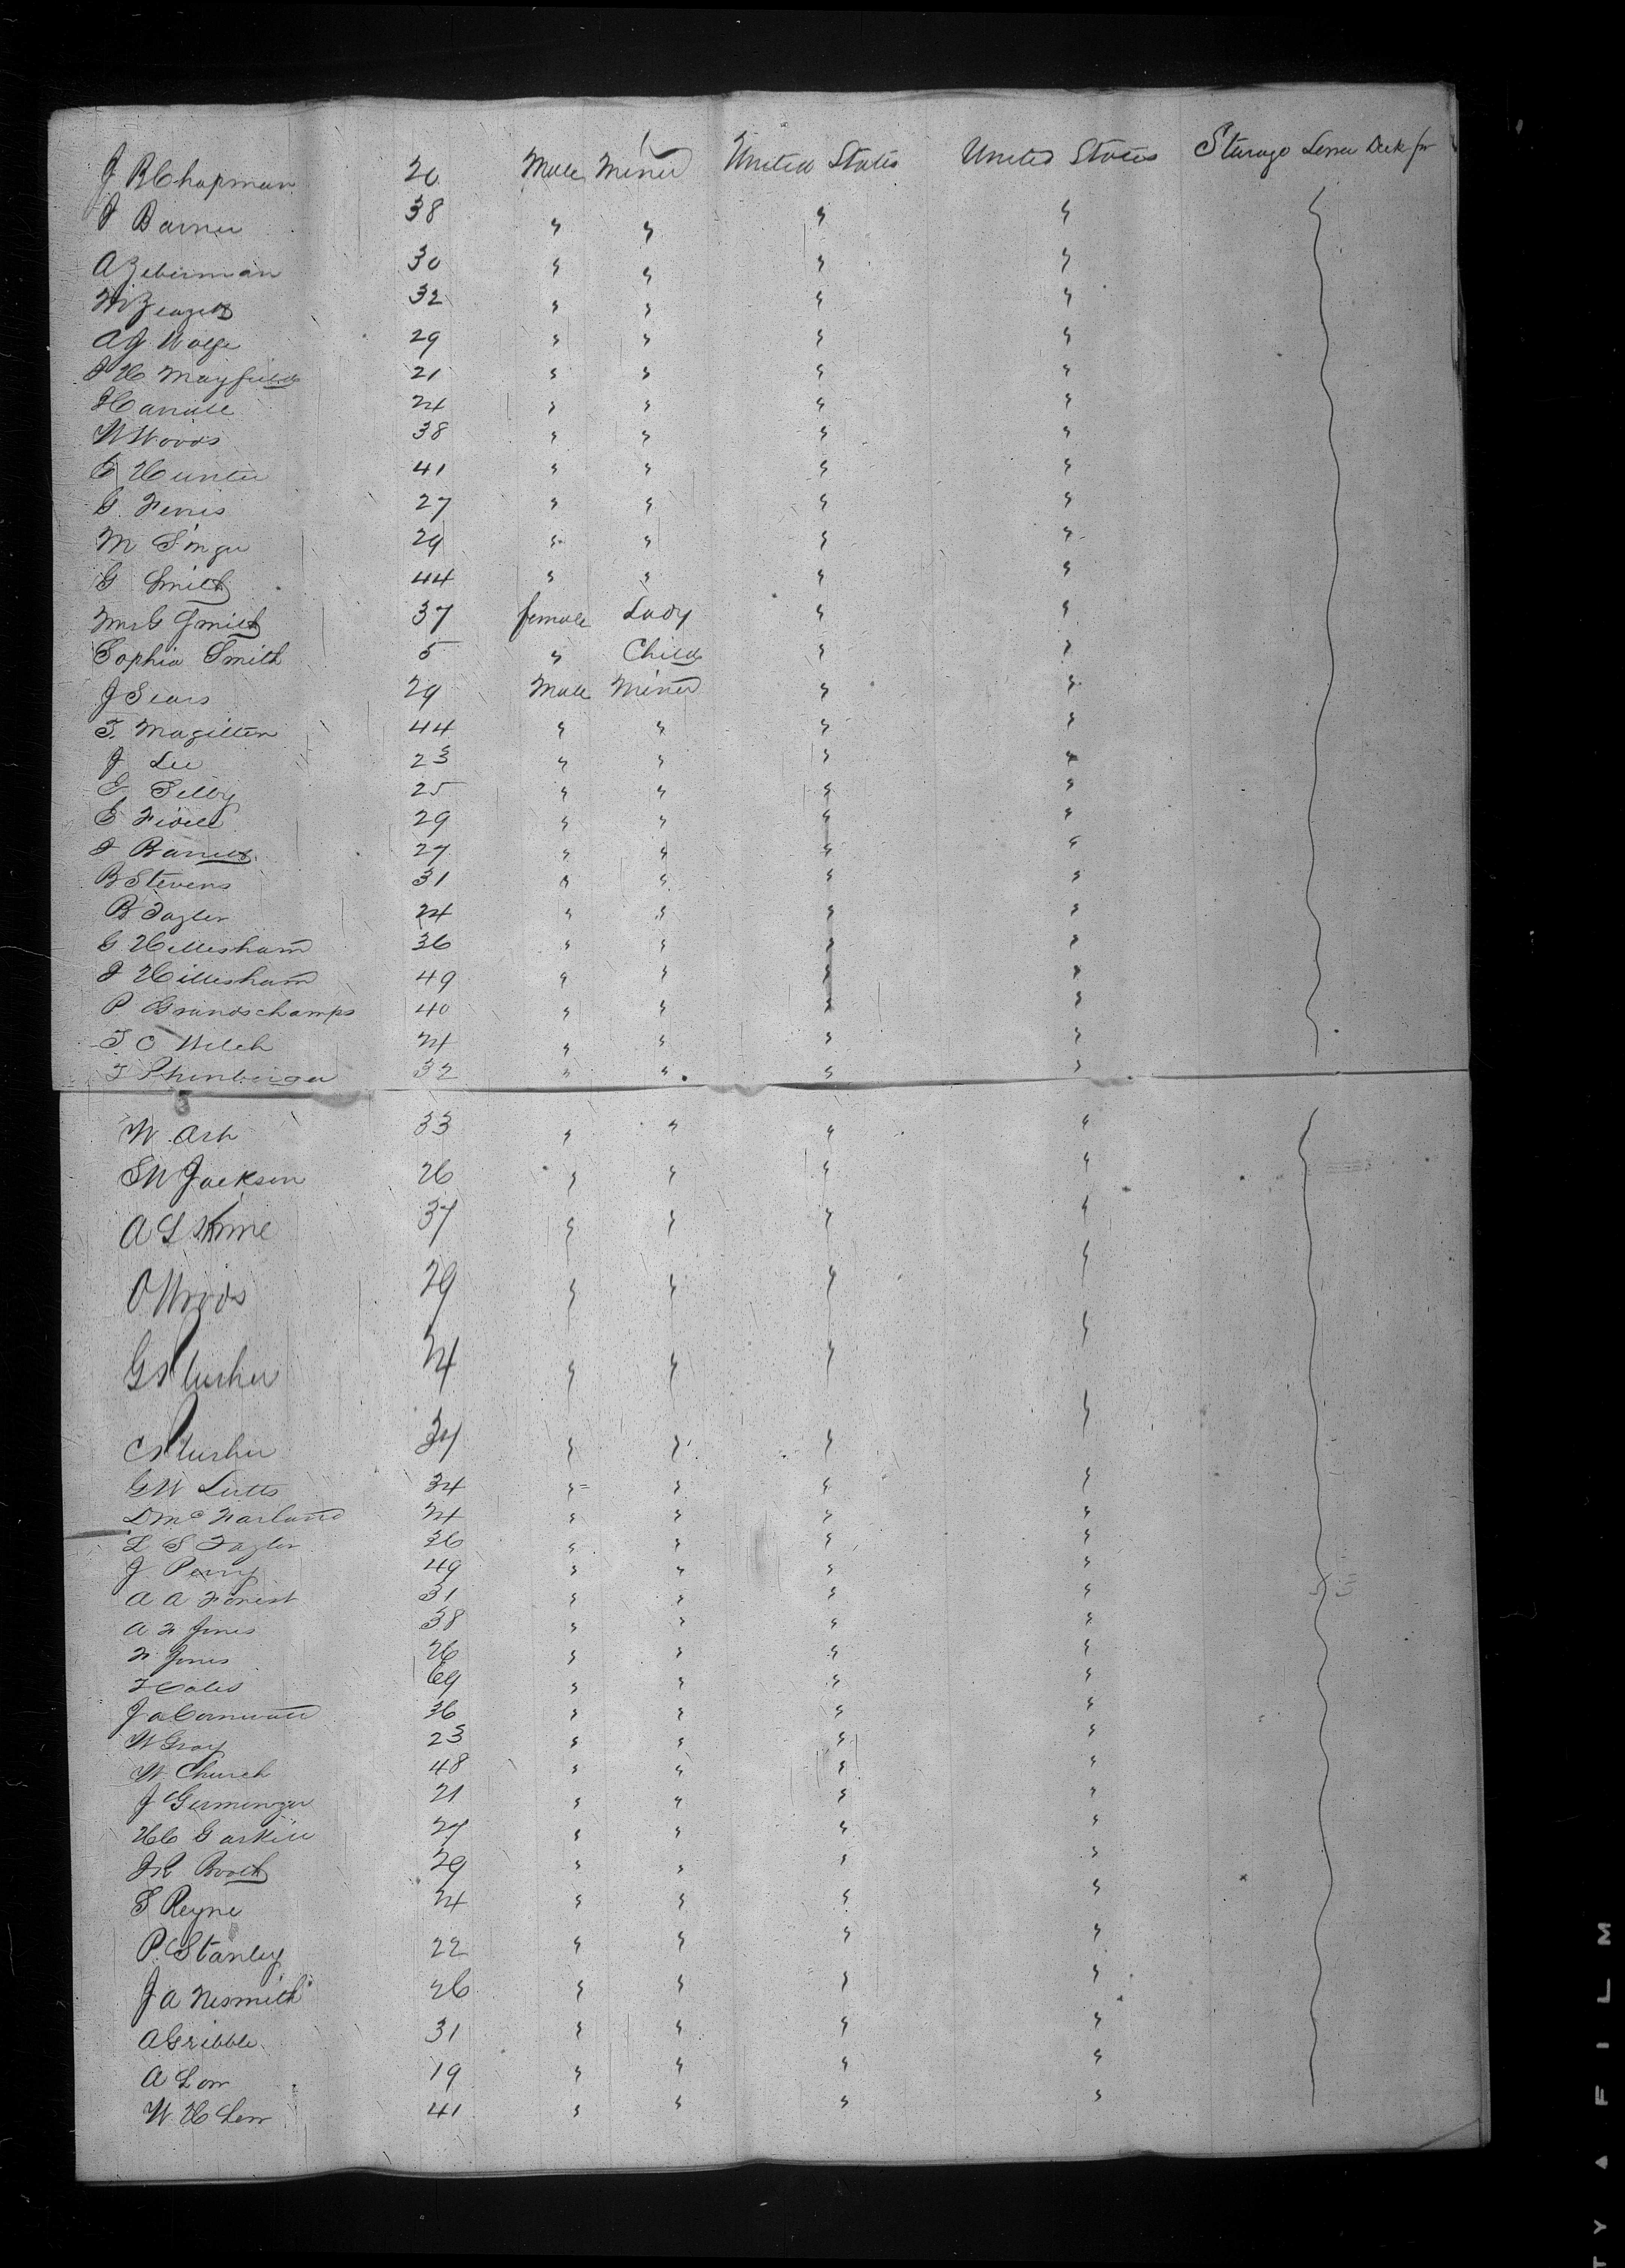 J B Chapman 20 Male Miner United States United States Steerage Lower Deck for
J Barner 38 " " " "
A Zeberman 30 " " " "
32 " " " "
A J Wolfe 29 " " " "
J H Mayfield 21 " " " "
24 " " " "
W Woods 38 " " " "
E Hunter 41 " " " "
G Ferris 27 " " " "
M Singer 29 " " " "
G Smith 44 " " " "
Mrs G Smith 37 female Lady " "
Sophia Smith 5 " Child " "
J Sears 29 Male Miner " "
T. Magitten 44 " " " "
J Lee 23 " " " "
E Selby 25 " " " "
E 29 " " " "
J Barrett 27 " " " "
B Stevens 31 " " " "
B Tayler 24 " " " "
G Hillesham 36 " " " "
J Hillesham 49 " " " "
P Grandschamps 40 " " " "
T C Welch 24 " " " "
T 32 " " " "
W. Ash 33 " " " "
S W Jackson 26 " " " "
A L 37 " " " "
O Woods 29 " " " "
G Slusher 24 " " " "
C Slusher 34 " " " "
G W Lutts 34 " " " "
D McFarland 24 " " " "
L S Tayler 36 " " " "
J Perry 49 " " " "
A A Forest 31 " " " "
A F Jones 38 " " " "
F. Jones 26 " " " "
69 " " " "
J A Cornwall 36 " " " "
W Gray 23 " " " "
W. Church 48 " " " "
J Germinger 21 " " " "
H C Gaskill 27 " " " "
J R Booth 29 " " " "
S Reyne 24 " " " "
P. Stanley 22 " " " "
J A Nesmith 26 " " " "
A Gribble 31 " " " "
A Low 19 " " " "
W H Low 41 " " " "